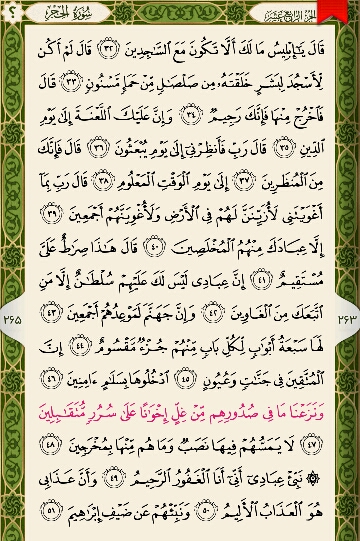 الجزء الرابع عشر
سورة الحجر
؟
قَالَ يَٰٓإِبْلِيسُ مَا لَكَ أَلَّا تَكُونَ مَعَ ٱلسَّٰجِدِينَ ﴿٣٢﴾ قَالَ لَمْ أَكُن
لِّأَسْجُدَ لِبَشَرٍ خَلَقْتَهُۥ مِن صَلْصَٰلٍ مِّنْ حَمَإٍ مَّسْنُونٍ ﴿٣٣﴾ قَالَ
فَٱخْرُجْ مِنْهَا فَإِنَّكَ رَجِيمٌ ﴿٣٤﴾ وَإِنَّ عَلَيْكَ ٱللَّعْنَةَ إِلَىٰ يَوْمِ
ٱلدِّينِ ﴿٣٥﴾ قَالَ رَبِّ فَأَنظِرْنِىٓ إِلَىٰ يَوْمِ يُبْعَثُونَ ﴿٣٦﴾ قَالَ فَإِنَّكَ
مِنَ ٱلْمُنظَرِينَ ﴿٣٧﴾ إِلَىٰ يَوْمِ ٱلْوَقْتِ ٱلْمَعْلُومِ ﴿٣٨﴾ قَالَ رَبِّ بِمَآ
أَغْوَيْتَنِى لَأُزَيِّنَنَّ لَهُمْ فِى ٱلْأَرْضِ وَلَأُغْوِيَنَّهُمْ أَجْمَعِينَ ﴿٣٩﴾
إِلَّا عِبَادَكَ مِنْهُمُ ٱلْمُخْلَصِينَ ﴿٤٠﴾ قَالَ هَٰذَا صِرَٰطٌ عَلَىَّ
مُسْتَقِيمٌ ﴿٤١﴾ إِنَّ عِبَادِى لَيْسَ لَكَ عَلَيْهِمْ سُلْطَٰنٌ إِلَّا مَنِ
ٱتَّبَعَكَ مِنَ ٱلْغَاوِينَ ﴿٤٢﴾ وَإِنَّ جَهَنَّمَ لَمَوْعِدُهُمْ أَجْمَعِينَ ﴿٤٣﴾
لَهَا سَبْعَةُ أَبْوَٰبٍ لِّكُلِّ بَابٍ مِّنْهُمْ جُزْءٌ مَّقْسُومٌ ﴿٤٤﴾ إِنَّ
ٱلْمُتَّقِينَ فِى جَنَّٰتٍ وَعُيُونٍ ﴿٤٥﴾ ٱدْخُلُوهَا بِسَلَٰمٍ ءَامِنِينَ ﴿٤٦﴾
وَنَزَعْنَا مَا فِى صُدُورِهِم مِّنْ غِلٍّ إِخْوَٰنًا عَلَىٰ سُرُرٍ مُّتَقَٰبِلِينَ
﴿٤٧﴾ لَا يَمَسُّهُمْ فِيهَا نَصَبٌ وَمَا هُم مِّنْهَا بِمُخْرَجِينَ ﴿٤٨﴾
۞ نَبِّئْ عِبَادِىٓ أَنِّىٓ أَنَا ٱلْغَفُورُ ٱلرَّحِيمُ ﴿٤٩﴾ وَأَنَّ عَذَابِى
هُوَ ٱلْعَذَابُ ٱلْأَلِيمُ ﴿٥٠﴾ وَنَبِّئْهُمْ عَن ضَيْفِ إِبْرَٰهِيمَ ﴿٥١﴾
٢٦٣
٢٦٥